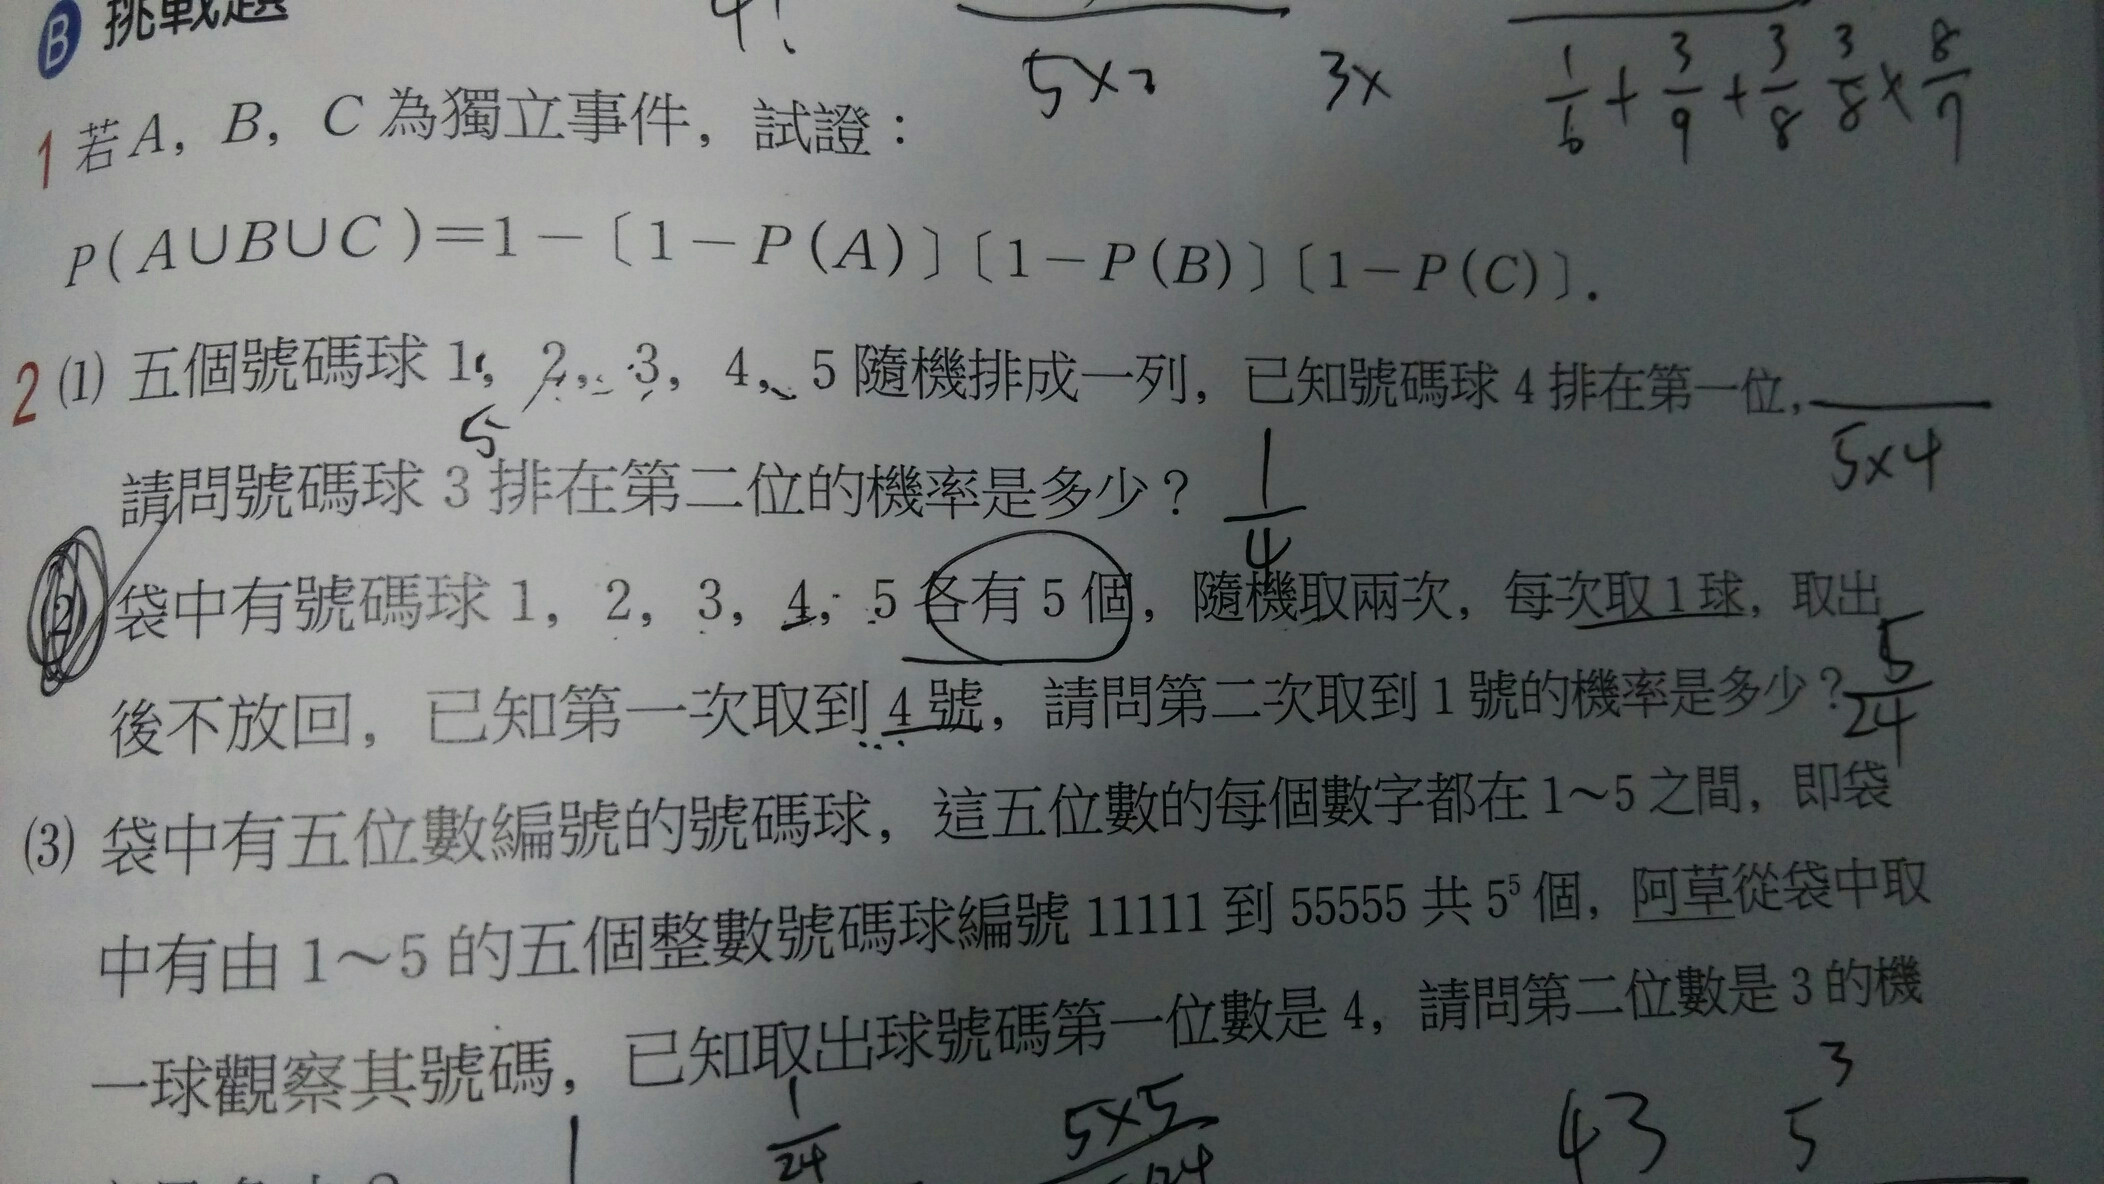 B 挑戰題
4!
5×2 3x 1/6 + 3/9 + 3/8 3/8 × 8/7
1 若A, B, C 為獨立事件, 試證:
P(A∪B∪C)=1-〔1-P(A)〕〔1-P(B)〕〔1-P(C)〕.
2 (1) 五個號碼球 1, 2, 3, 4, 5 隨機排成一列, 已知號碼球 4 排在第一位,
5
5×4
請問號碼球 3 排在第二位的機率是多少? 1/4
(2) 袋中有號碼球 1, 2, 3, 4, 5 各有 5 個, 隨機取兩次, 每次取 1 球, 取出
後不放回, 已知第一次取到 4 號, 請問第二次取到 1 號的機率是多少? 5/24
(3) 袋中有五位數編號的號碼球, 這五位數的每個數字都在 1~5 之間, 即袋
中有由 1~5 的五個整數號碼球編號 11111 到 55555 共 5⁵ 個, 阿草從袋中取
一球觀察其號碼, 已知取出球號碼第一位數是 4, 請問第二位數是 3 的機
1 1/24 5×5 43 5³